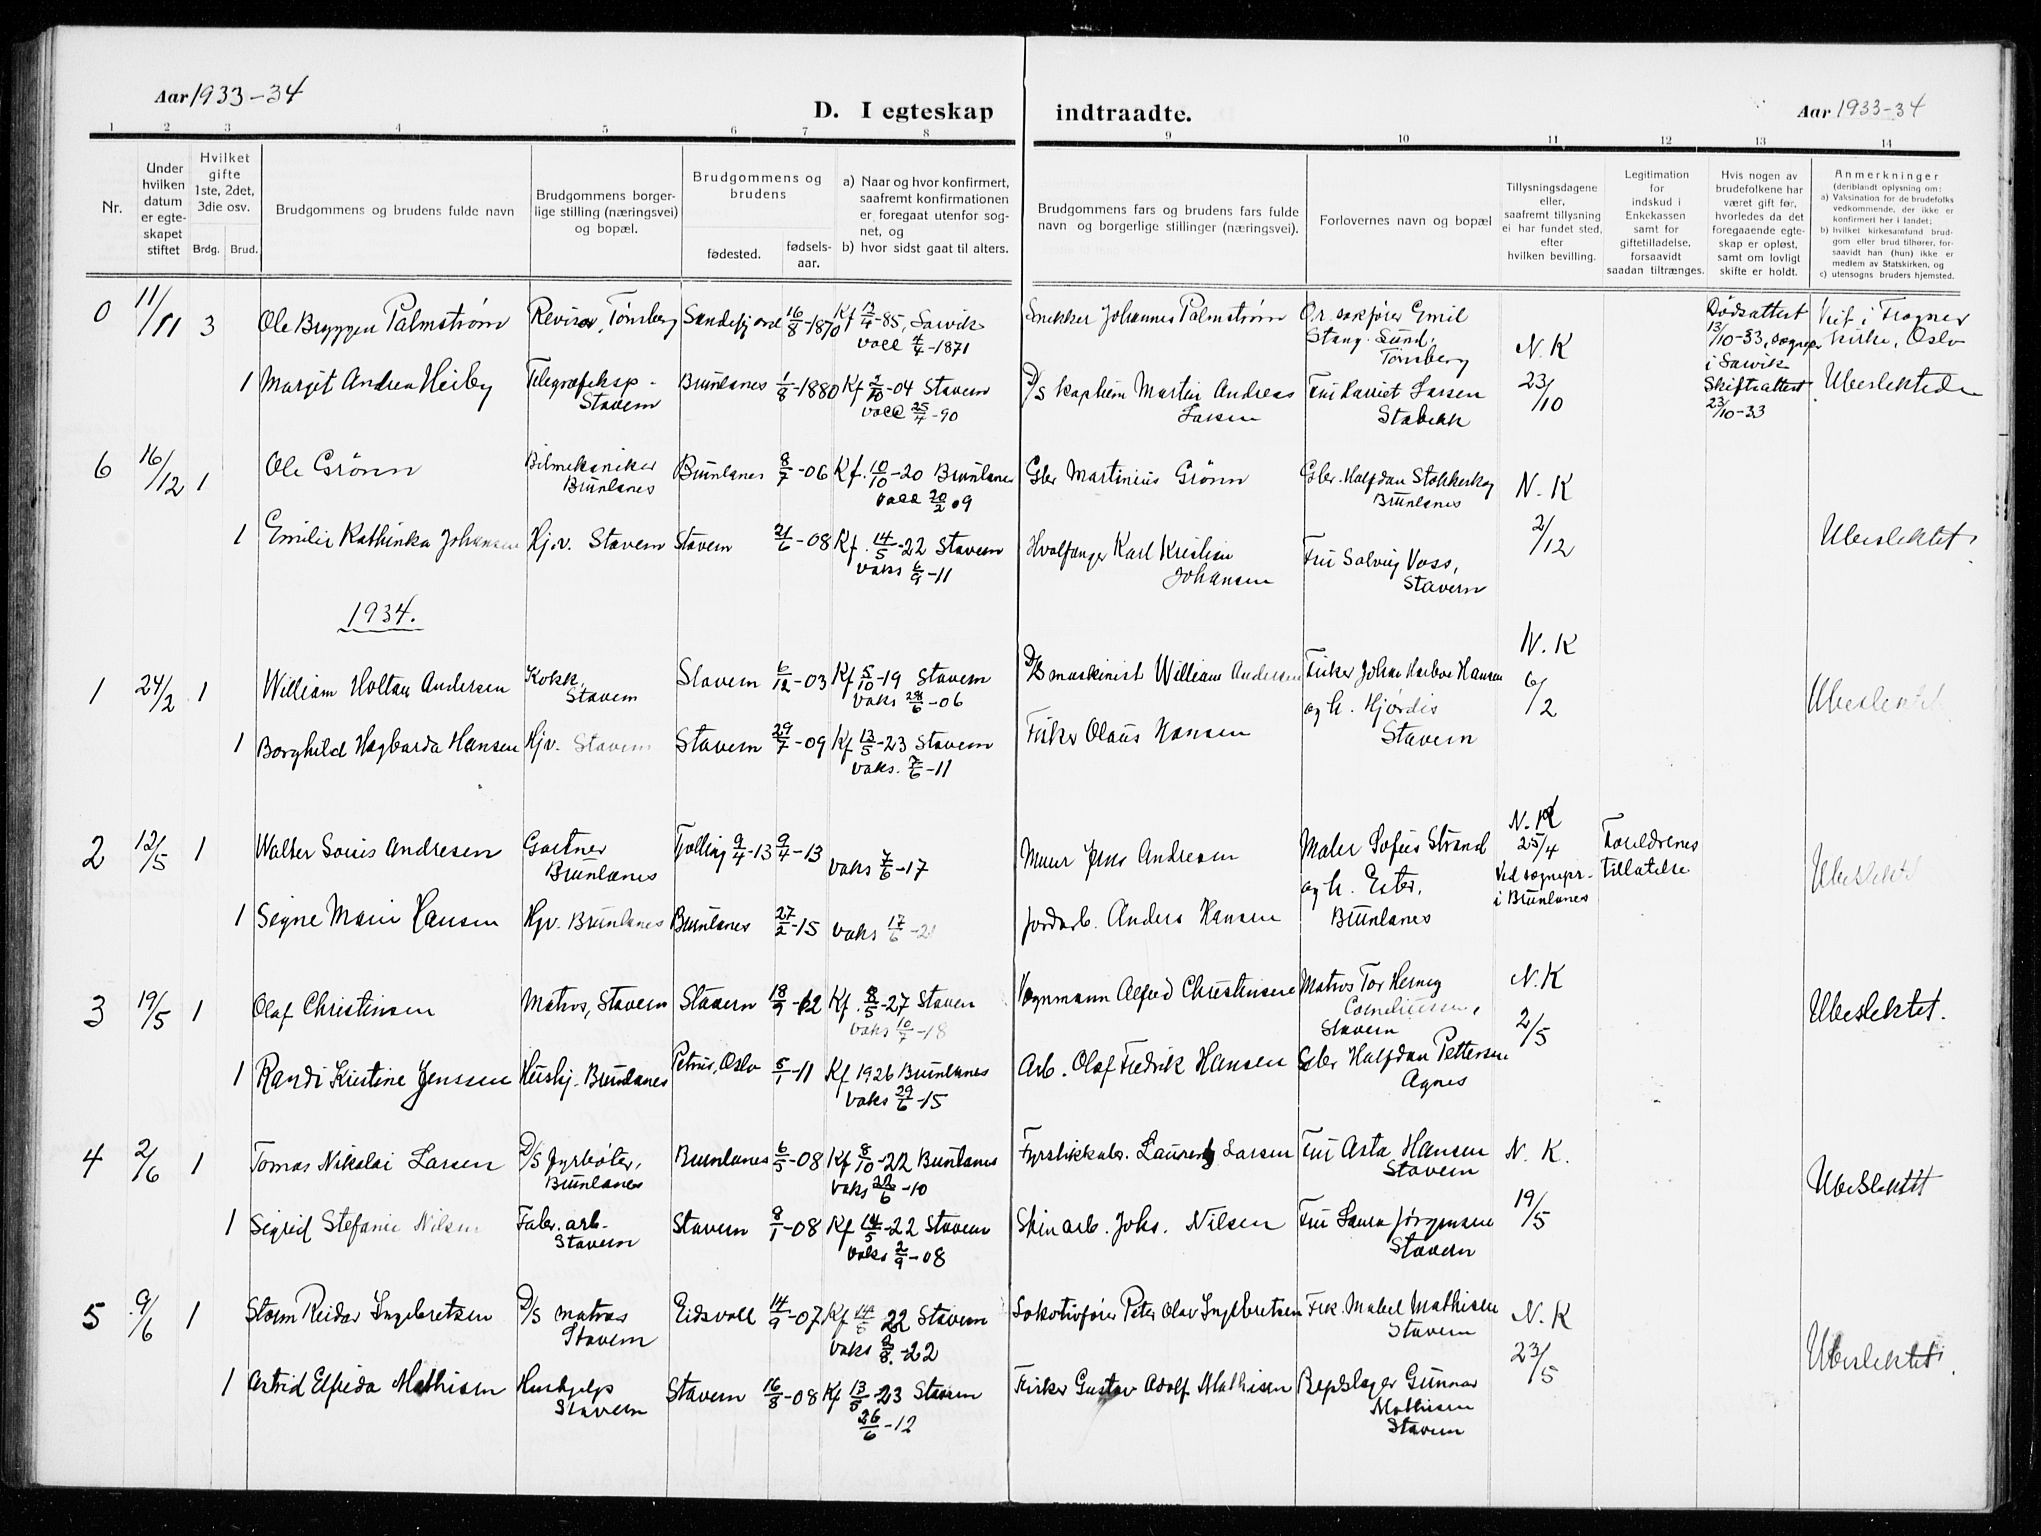 Aar 1933-34
D. I egteskap indtraadte.
Aar 1933-34
1 2 3 4 5 6 7 8 9 10 11 12 13 14
Nr.
Under hvilken datum er egteskapet stiftet
Hvilket gifte 1ste, 2det, 3die osv.
Brdg. Brud.
Brudgommens og brudens fulde navn
Brudgommens borgerlige stilling (næringsvei) og bopæl.
Brudgommens og brudens
fødested.
fødselsaar.
a) Naar og hvor konfirmert, saafremt konfirmationen er foregaat utenfor sognet, og
b) hvor sidst gaat til alters.
Brudgommens fars og brudens fars fulde navn og borgerlige stillinger (næringsvei).
Forlovernes navn og bopæl
Tillysningsdagene eller, saafremt tillysning ei har fundet sted, efter hvilken bevilling.
Legitimation for indskud i Enkekassen samt for giftetilladelse, forsaavidt saadan tiltrænges.
Hvis nogen av brudefolkene har været gift før, hvorledes da det foregaaende egteskap er opløst, samt om lovligt skifte er holdt.
Anmerkninger
(deriblandt oplysning om:
a) Vaksination for de brudefolks vedkommende, der ikke er konfirmert her i landet;
b) hvilket kirkesamfund brudgom eller brud tilhører, forsaavidt han (hun) ikke er medlem av Statskirken, og
c) utensogns bruders hjemsted.
0 11/11 3 Ole Bryggen Palmstrøm Revisor, Tønsberg Sandefjord 16/8-1870 Kf 12/4-85, Larvik
vacc 4/4-1871
Snekker Johannes Palmstrøm O.r. sakfører Emil
Stang. Sund, Tønsberg
N.K
23/10
Dødsattest
13/10-33, sognepr
i Larvik
Skifteattest
23/10-33
Viet i Frogner
Kirke, Oslo
1 Margit Andrea Heiby Telegrafeksp - Stavern Brunlanes 1/8-1880 Kf 2/10-04 Stavern
vacc 25/4-90
D/S kaptein Martin Andreas Larsen Fru Harriet Larsen
Stabekk
Ubeslektede
6 16/12 1 Ole Grønn Bilmekaniker Brunlanes Brunlanes 8/7-06 Kf. 10/10-20 Brunlanes
vacc 20/2 09
Gbr Martinius Grønn Gbr. Halfdan Stokkeskog
Brunlanes
N.K
2/12
1 Emilie Kathinka Johansen Hjv. Stavern Stavern 21/6-08 Kf. 14/5-22 Stavern
vaks 6/9-11
Hvalfanger Karl Kristian Johansen Fru Solveig Voss,
Stavern
Ubeslektet.
1934.
1 24/2 1 William Holtau Andersen Kokk, Stavern Stavern 6/12-03 Kf 5/10-19 Stavern
vaks 28/6-06
D/S maskinist William Andersen Fisker Johan Hansen
og h. Hjørdis
Stavern
N.K
6/2
Ubeslektet
1 Borghild Hagbarda Hansen Hjv. Stavern Stavern 29/7-09 Kf 13/5-23 Stavern
vaks. 7/6-11
Fisker Olaus Hansen
2 12/5 1 Walter Louis Andresen Gartner Brunlanes Tjølling 9/4-13 9/4-13 vaks 7/6-17
Murer Jens Andresen Maler Sofus Strand
og h. Ester,
Brunlanes
N.K
25/4
Ved sognepr.
i Brunlanes
Foreldrenes
tillatelse
Ubeslektet
1 Signe Marie Hansen Hjv. Brunlanes Brunlanes 27/2-15 vaks 17/6-21
Jordarb. Anders Hansen
3 19/5 1 Olaf Christensen Matros, Stavern Stavern 18/9-12 Kf. 8/5-27 Stavern
vaks 10/7-18
Vognmann Alfred Christensen Matros Tor Henry
Corneliussen,
Stavern
N.K
2/5
Ubeslektet.
1 Randi Kristine Jenssen Hushj. Brunlanes Petrus, Oslo 5/1-11 Kf 1926 Brunlanes
vaks 29/6-15
Arb. Olaf Fredrik Hansen Gbr Halfdan Pettersen
Agnes
4 2/6 1 Tomas Nikolai Larsen D/S fyrbøter, Brunlanes Brunlanes 6/5-08 Kf 8/10-22 Brunlanes
vaks 22/6-10
Fyrstikkabr. Laurentz Larsen Fru Asta Hansen
Stavern
N.K.
19/5
Ubeslektet
1 Sigrid Stefanie Nilsen Fabr. arb. Stavern Stavern 8/1-08 Kf 14/5-22 Stavern
vaks 2/9-08
Skinarb. Johs. Nilsen Fru Laura Jørgensen
Stavern
5 9/6 1 Storm Reidar Ingebretsen D/S matros Stavern Eidsvoll 14/9-07 Kf 14/5 22 Stavern
vaks 8/8-22
Lokotivfører Peter Olav Ingebretsen Frk. Mabel Mathisen
Stavern
N.K
23/5
Ubeslektet
1 Astrid Elfrida Mathisen Hushjelp Stavern Stavern 16/8-08 Kf 13/5-23 Stavern
26/6-12
Fisker Gustav Adolf Mathisen Repslager Gunnar
Mathisen
Stavern